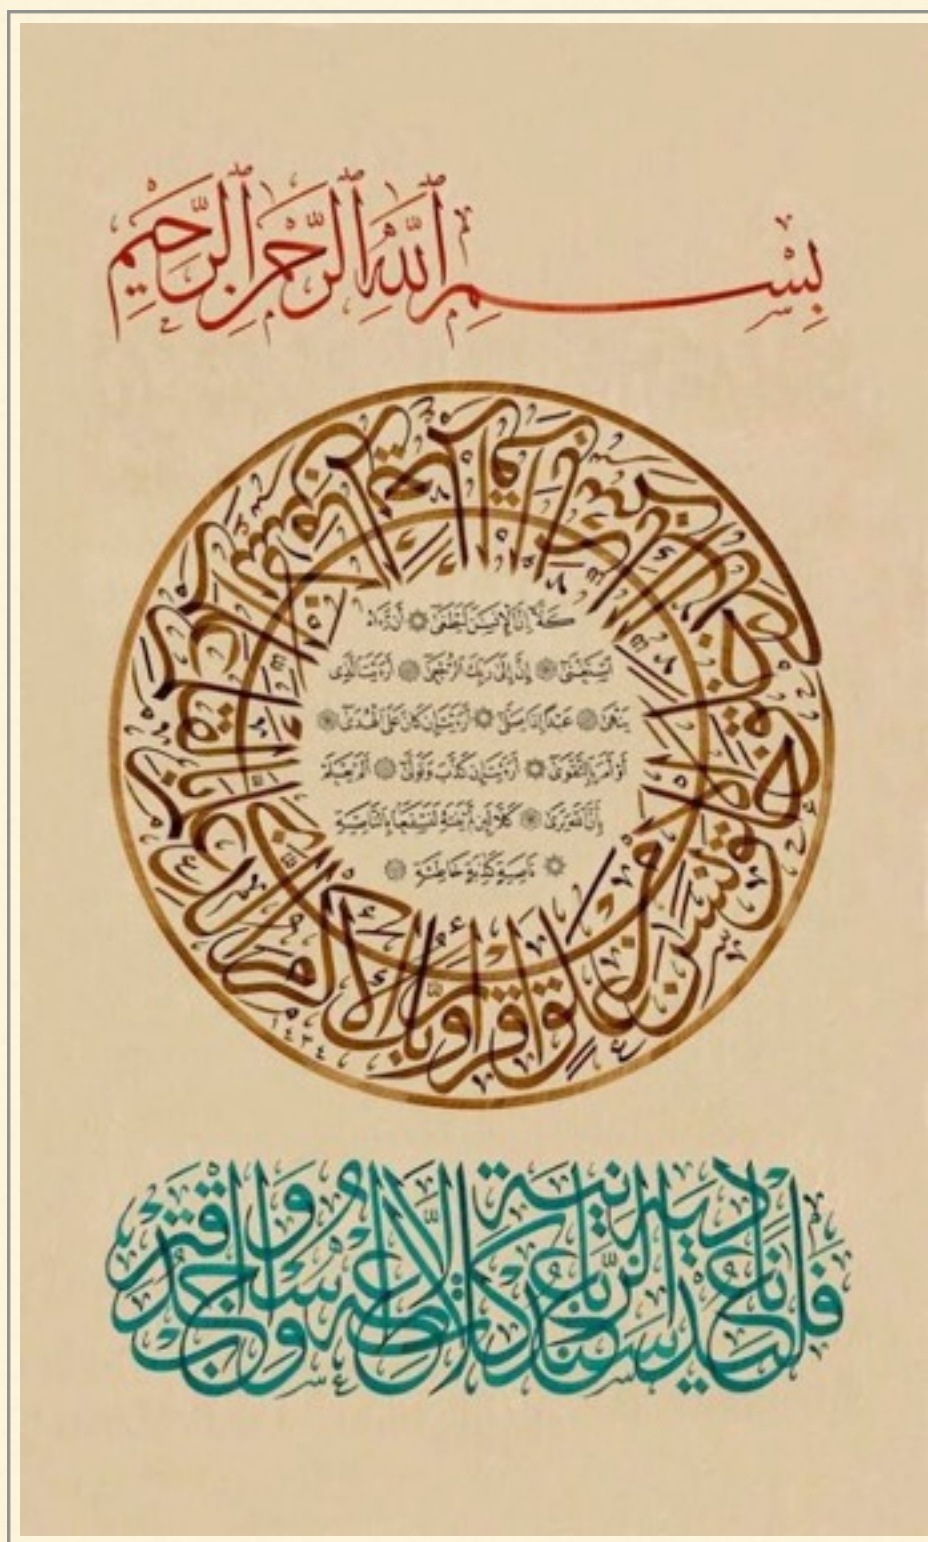 بِسْمِ ٱللَّهِ ٱلرَّحْمَٰنِ ٱلرَّحِيمِ
اقرأ باسم ربك الذي خلق خلق الإنسان من علق اقرأ وربك الأكرم الذي علم بالقلم علم الإنسان ما لم يعلم
كَلَّا إِنَّ الْإِنسَٰنَ لَيَطْغَىٰ ۞ أَن رَّءَاهُ
اسْتَغْنَىٰ ۞ إِنَّ إِلَىٰ رَبِّكَ الرُّجْعَىٰ ۞ أَرَءَيْتَ الَّذِي
يَنْهَىٰ ۞ عَبْدًا إِذَا صَلَّىٰ ۞ أَرَءَيْتَ إِن كَانَ عَلَى الْهُدَىٰ ۞
أَوْ أَمَرَ بِالتَّقْوَىٰ ۞ أَرَءَيْتَ إِن كَذَّبَ وَتَوَلَّىٰ ۞ أَلَمْ يَعْلَم
بِأَنَّ اللَّهَ يَرَىٰ ۞ كَلَّا لَئِن لَّمْ يَنتَهِ لَنَسْفَعًا بِالنَّاصِيَةِ
۞ نَاصِيَةٍ كَٰذِبَةٍ خَاطِئَةٍ ۞
١٤٣٤
فليدع ناديه سندع الزبانية كلا لا تطعه واسجد واقترب